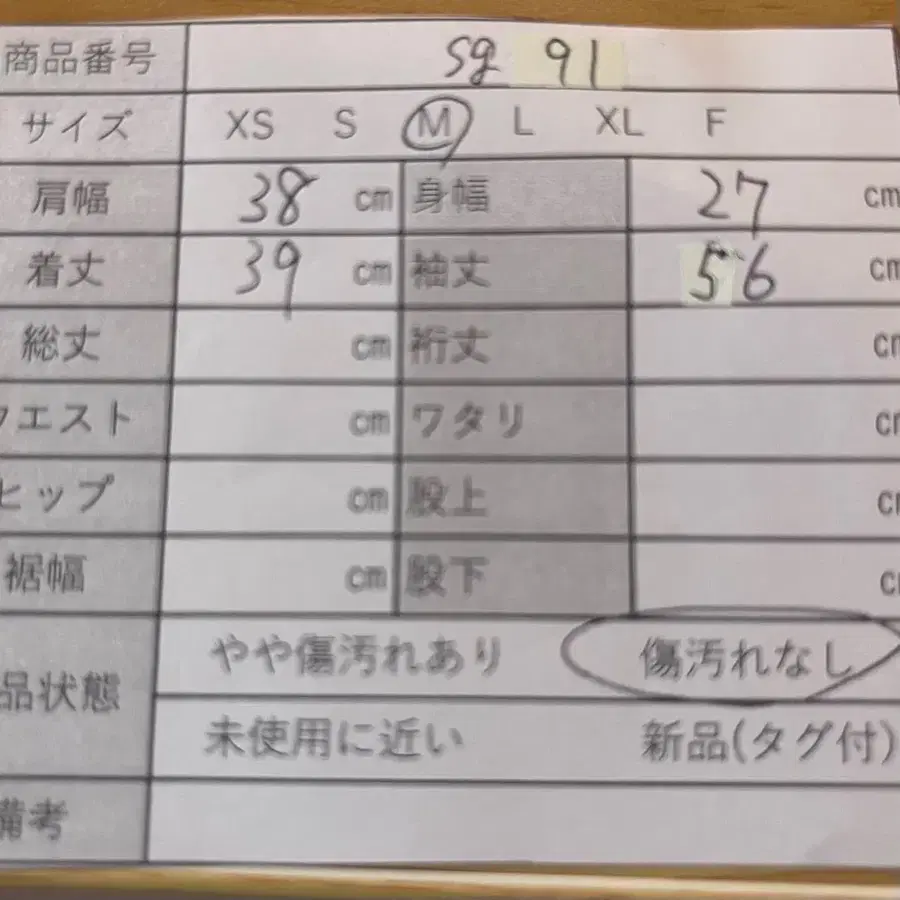 商品番号 sg 91
サイズ XS S M L XL F
肩幅 38 cm 身幅 27 cm
着丈 39 cm 袖丈 56 cm
総丈 cm 裄丈 cm
ウエスト cm ワタリ cm
ヒップ cm 股上 cm
裾幅 cm 股下 cm
品状態 やや傷汚れあり 傷汚れなし
未使用に近い 新品(タグ付)
備考